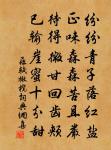 紛紛青子落紅鹽
正味森森苦且嚴
待得微甘回齒頰
已輸崖蜜十分甜
蘇軾橄欖